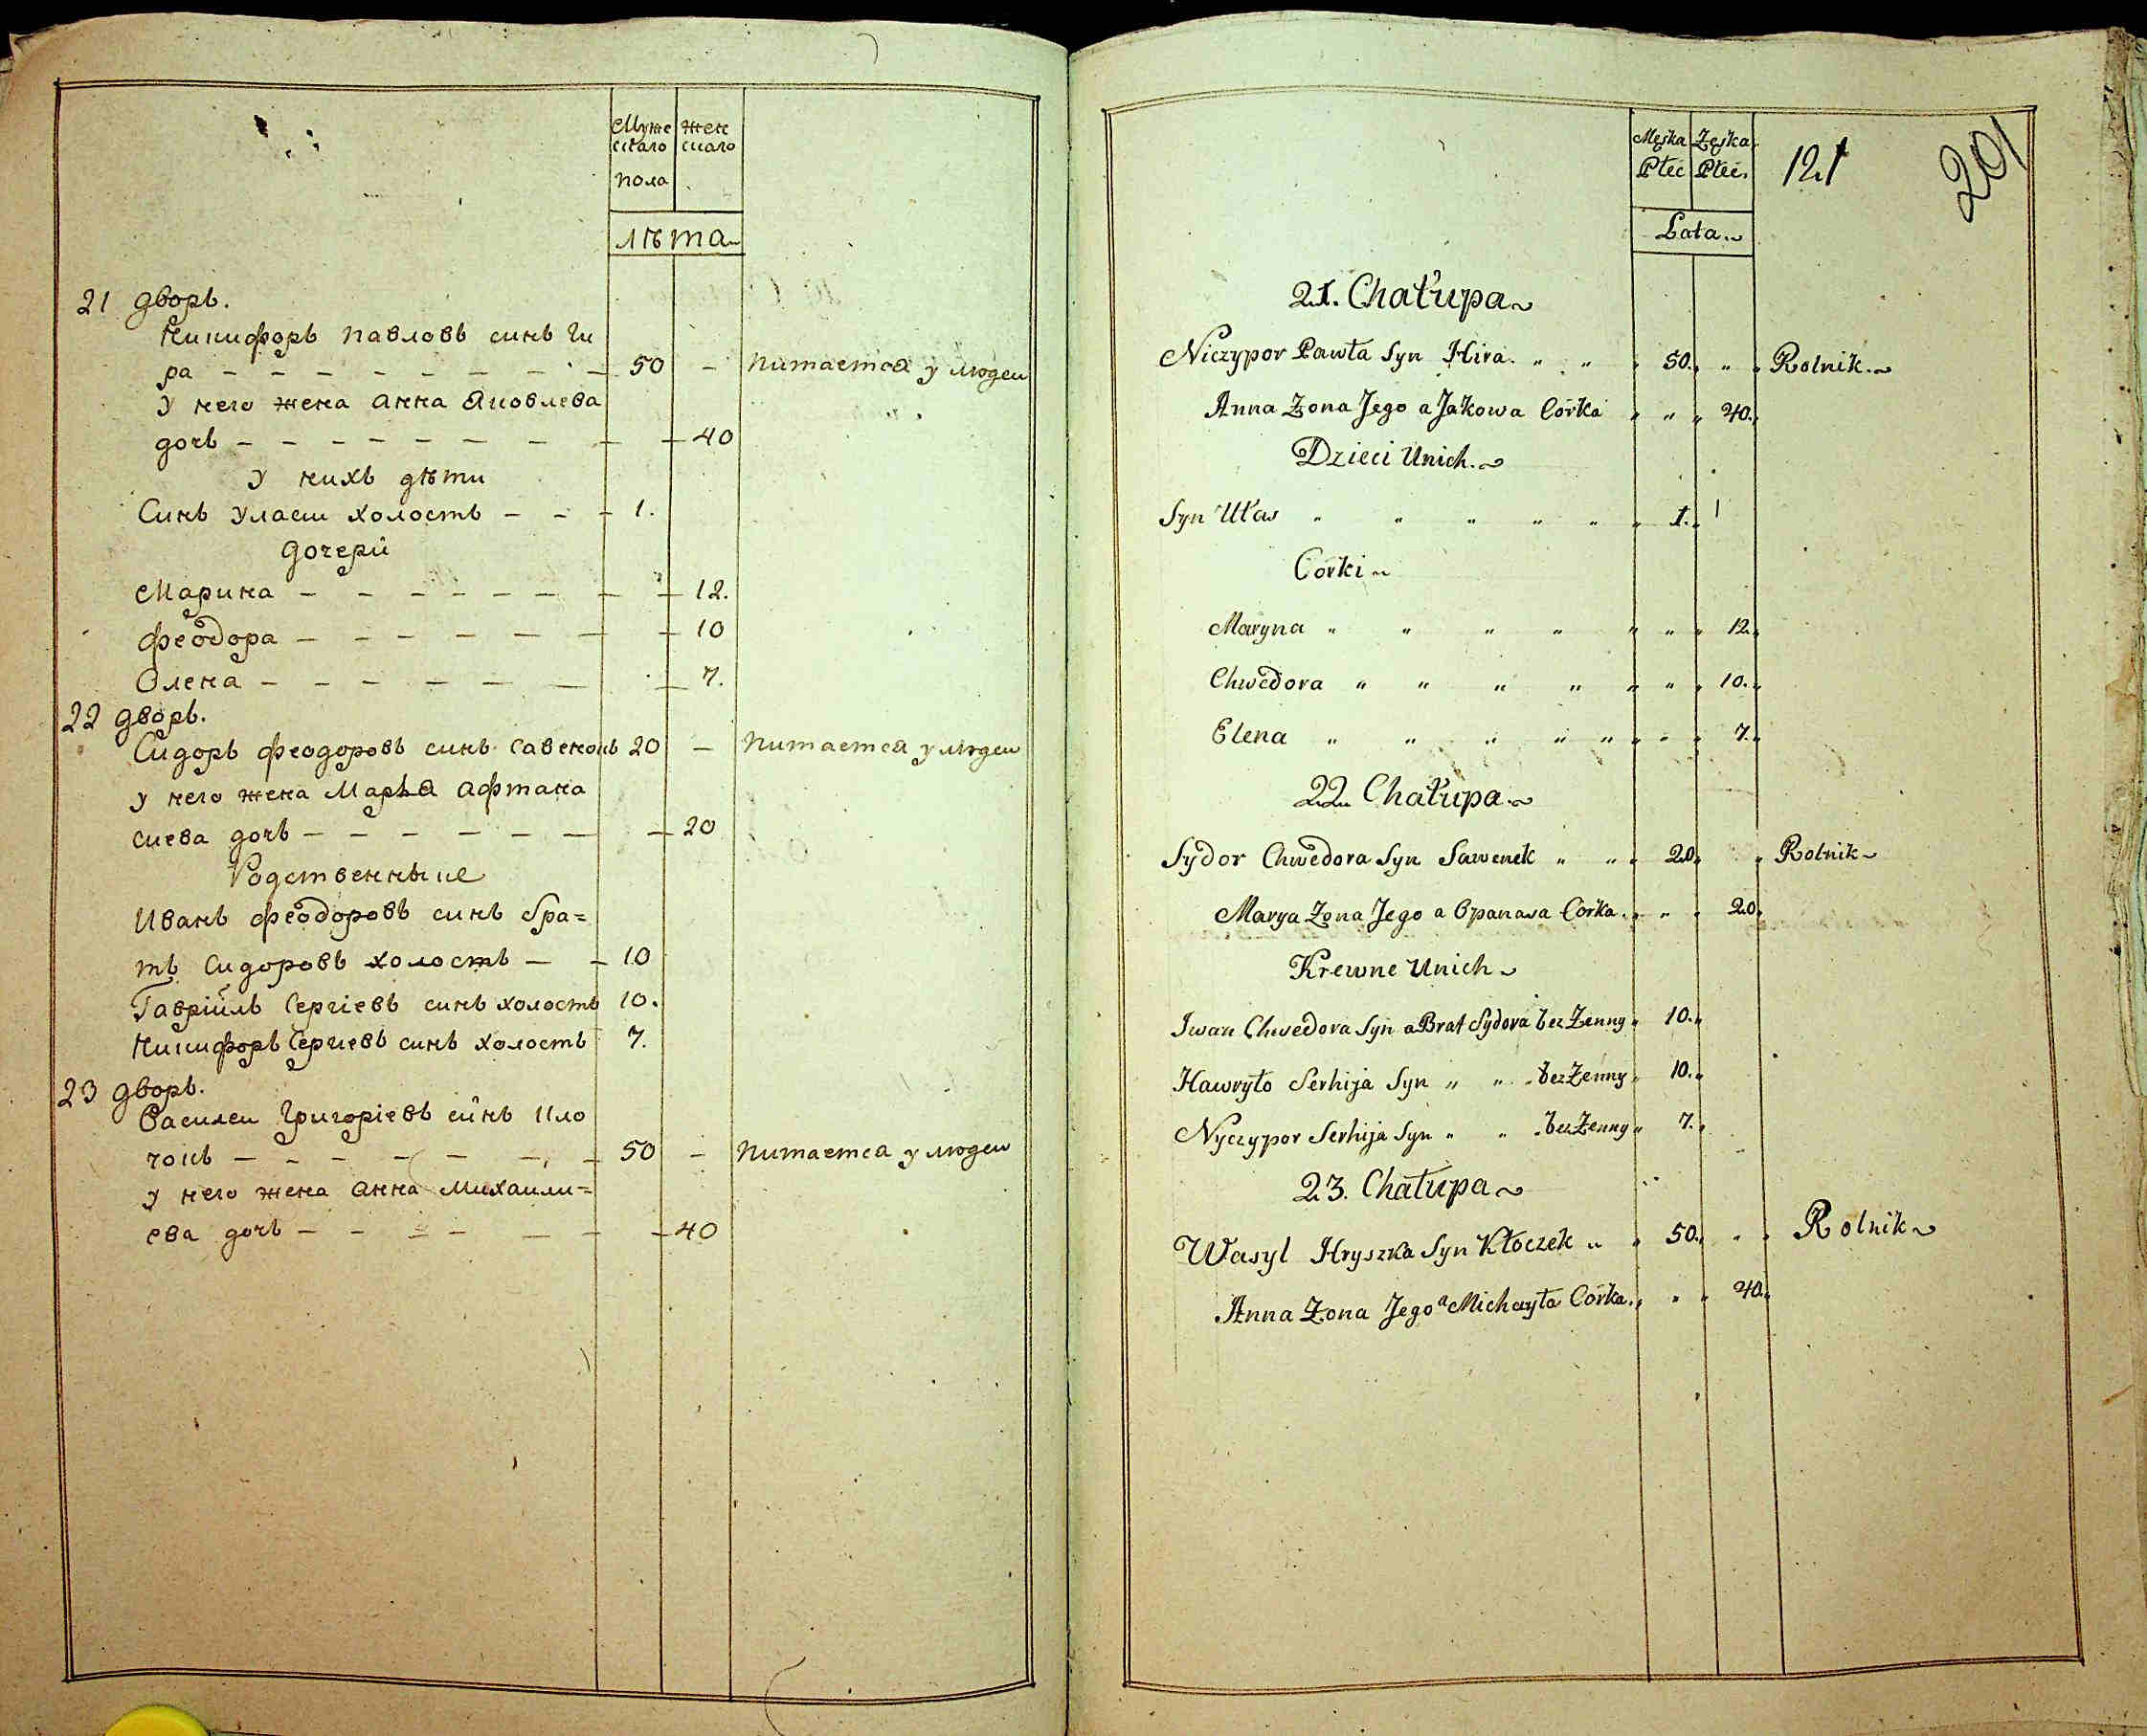 Муже жен
скаго скаго
пола
лѣта
21 дворъ.
Никифоръ павловъ синъ Ги
ра — — — — — — — — 50 — питается у людеи
У него жена анна Яковлева
дочь — — — — — — — — — 40
У нихъ дѣти
Синъ Уласи холостъ — — — 1.
дочерѝ
Марина — — — — — — — — 12.
феодора — — — — — — — 10
Олена — — — — — — — 7.
22 дворъ.
Сидоръ феодоровъ синъ Савенокъ 20 — питается у людеи
у него жена Марья афтана
сиева дочь — — — — — — — 20
Родственныие
Иванъ феодоровъ синъ бра=
тъ Сидоровъ холостъ — — 10
Гавріилъ Сергіевъ синъ холостъ 10.
Никифоръ Сергиевъ синъ холостъ 7.
23 дворъ.
Василеи Григоріевъ синъ Кло
чокъ — — — — — — — 50 — питается у людеи
у него жена анна Михаили=
ева дочь — — — — — — — 40
Męska Zęska
Płeć Płeć.
121
201
Lata
21. Chałupa
Niczypor Pawła Syn Hira. " " " 50. " " Rolnik.
Anna Zona Jego a Jakowa Corka " " " 40.
Dzieci Unich.
Syn Ułas " " " " " " 1.
Corki
Maryna " " " " " " " 12.
Chwedora " " " " " " " 10.
Elena " " " " " " " " 7.
22. Chałupa
Sydor Chwedora Syn Sawenek " " " 20. " Rolnik
Marya Zona Jego a Opanasa Corka. " " " 20.
Krewne Unich
Iwan Chwedora Syn a Brat Sydora bez Zenny " 10.
Hawryło Serhija Syn " " " bez Zenny " 10.
Nyczypor Serhija Syn " " " bez Zenny " 7.
23. Chałupa
Wasyl Hryszka Syn Kłoczek " " 50. " " Rolnik
Anna Zona Jego a Michayła Corka. " " " 40.